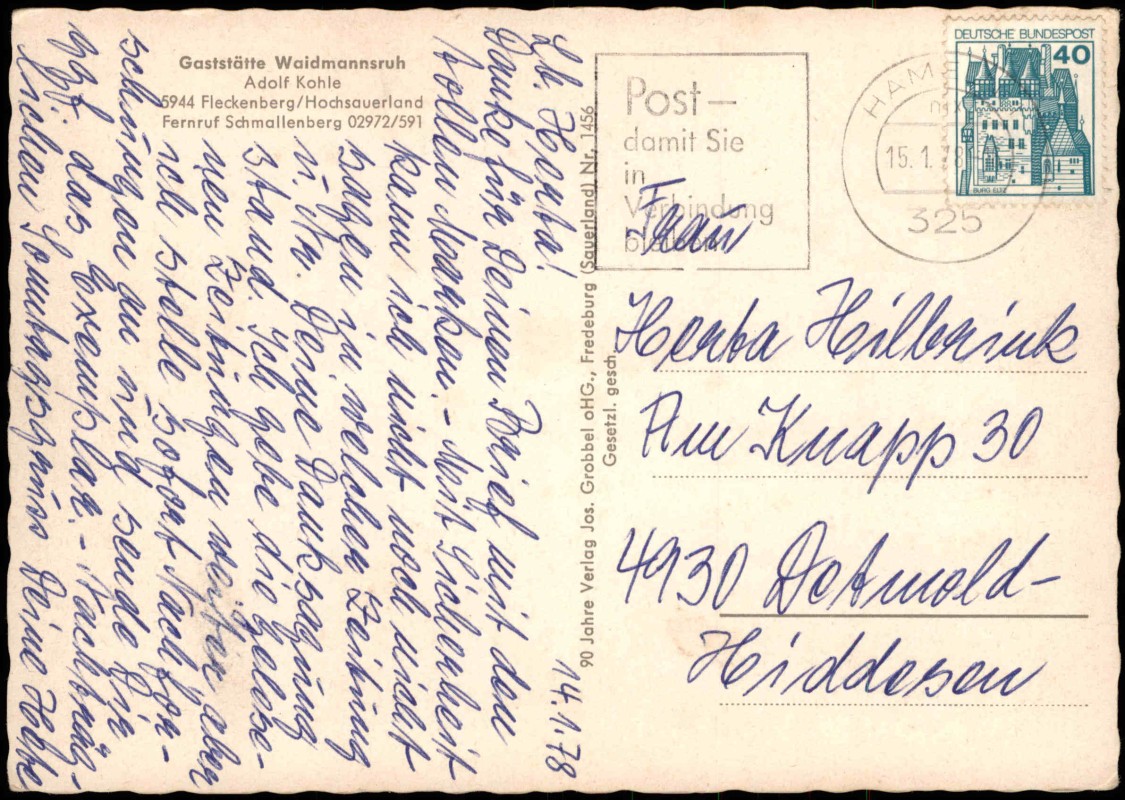 Gaststätte Waidmannsruh
Adolf Kohle
5944 Fleckenberg/Hochsauerland
Fernruf Schmallenberg 02972/591
14.1.78
Lb. Herta!
Danke für Deinen Brief mit den
tollen Marken. - Mit Sicherheit
kann ich nicht noch nicht
sagen in welcher Zeitung
u. Nr. Deine Danksagung
stand. Ich gebe die gelese-
nen Zeitungen weiter aber
ich stelle sofort Nachfor-
schungen an und sende Dir
ggf. das Exemplar. - Nachträg-
lichen Sonntagsgruß Deine
90 Jahre Verlag Jos. Grobbel oHG., Fredeburg (Sauerland) Nr. 1456
Gesetzl. gesch.
Post –
damit Sie
in
Verbindung
bleiben
HAM
15. 1. 78
325
DEUTSCHE BUNDESPOST
40
BURG ELTZ
Frau
Herta Hilbrink
Am Knapp 30
4930 Detmold-
Hiddesen